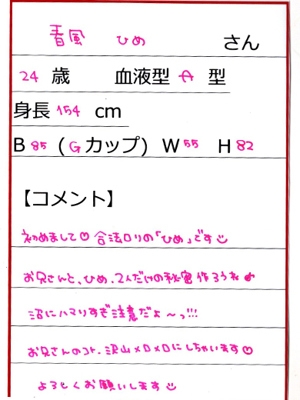 春風 ひめ さん
24 歳 血液型 A 型
身長 154 cm
B 85 (Gカップ) W 55 H 82
【コメント】
初めまして♡合法ロリの「ひめ」です
お兄さんと、ひめ、2人だけの秘密作ろうね
沼にハマりすぎ注意だよ〜っ!!!
お兄さんのコト、沢山メロメロにしちゃいます♡
よろしくお願いします